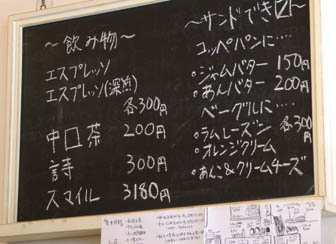 〜飲み物〜
エスプレッソ
エスプレッソ(深煎)
各300円
中口茶 200円
詩 300円
スマイル 3180円
〜サンドできㄖ〜
コッペパンに‥‥
・ジャムバター 150円
・あんバター 200円
ベーグルに‥‥
・ラムレーズン
・オレンジクリーム
各300円
・あんこ&クリームチーズ